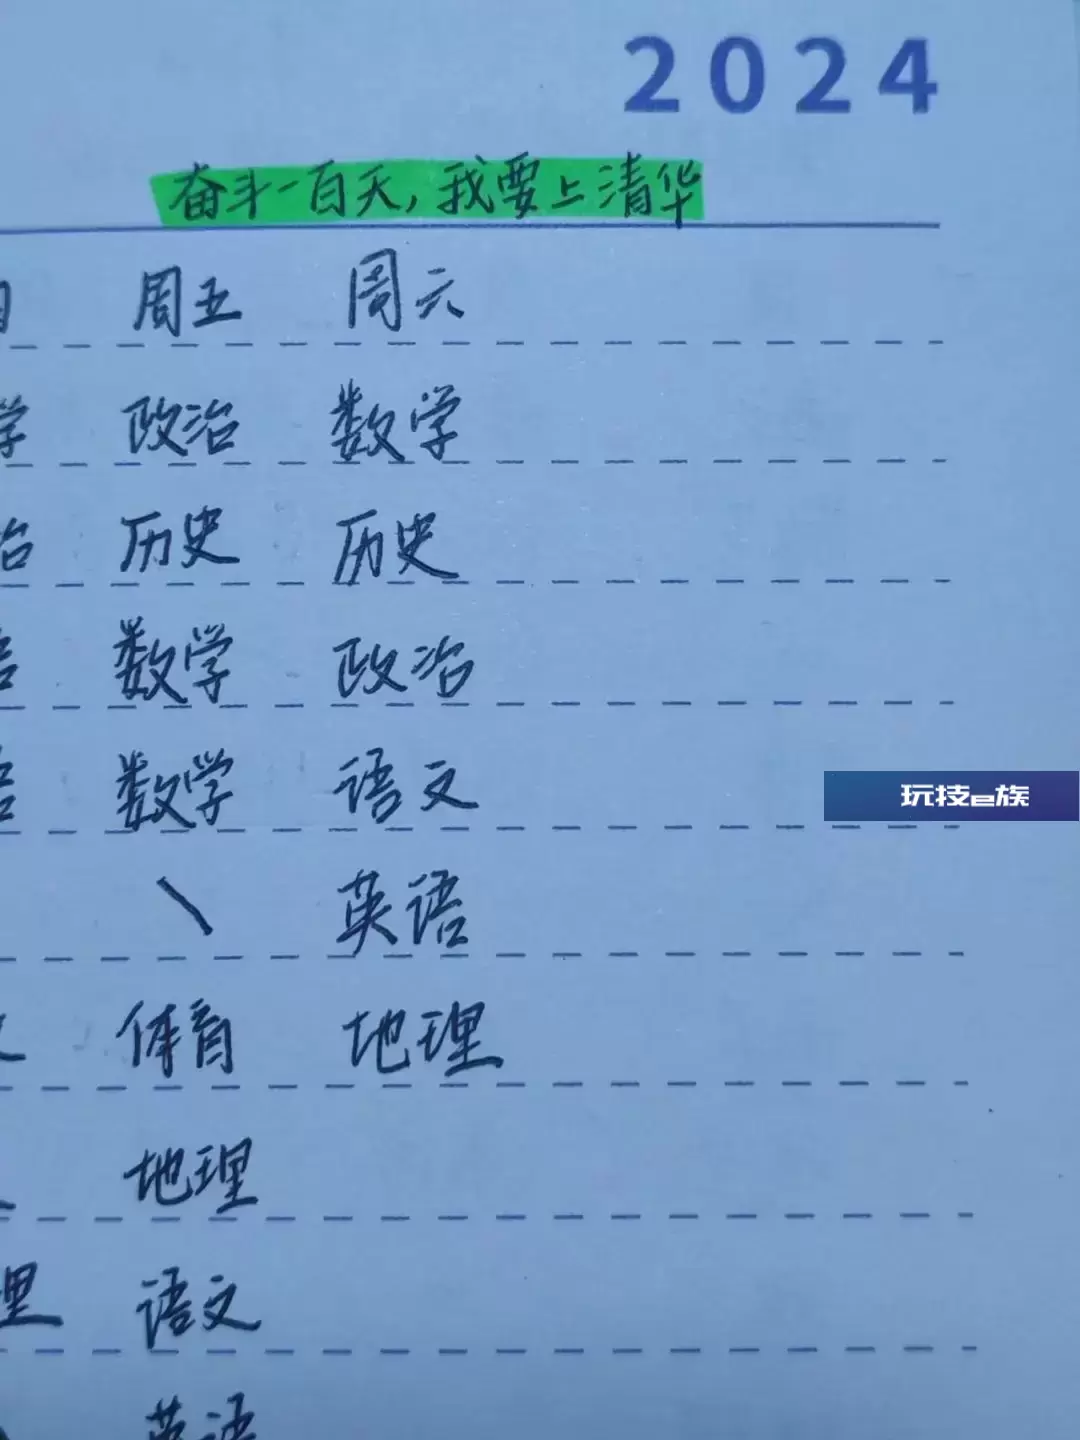 2024
奋斗一百天，我要上清华
周五 周六
学 政治 数学
治 历史 历史
语 数学 政治
语 数学 语文
\ 英语
体育 地理
地理
理 语文
英语
玩技e族